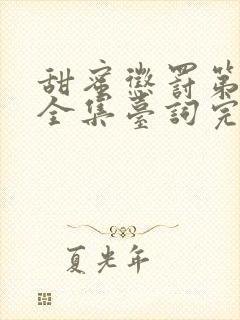 甜蜜懲罰第
全集臺詞完
夏光年